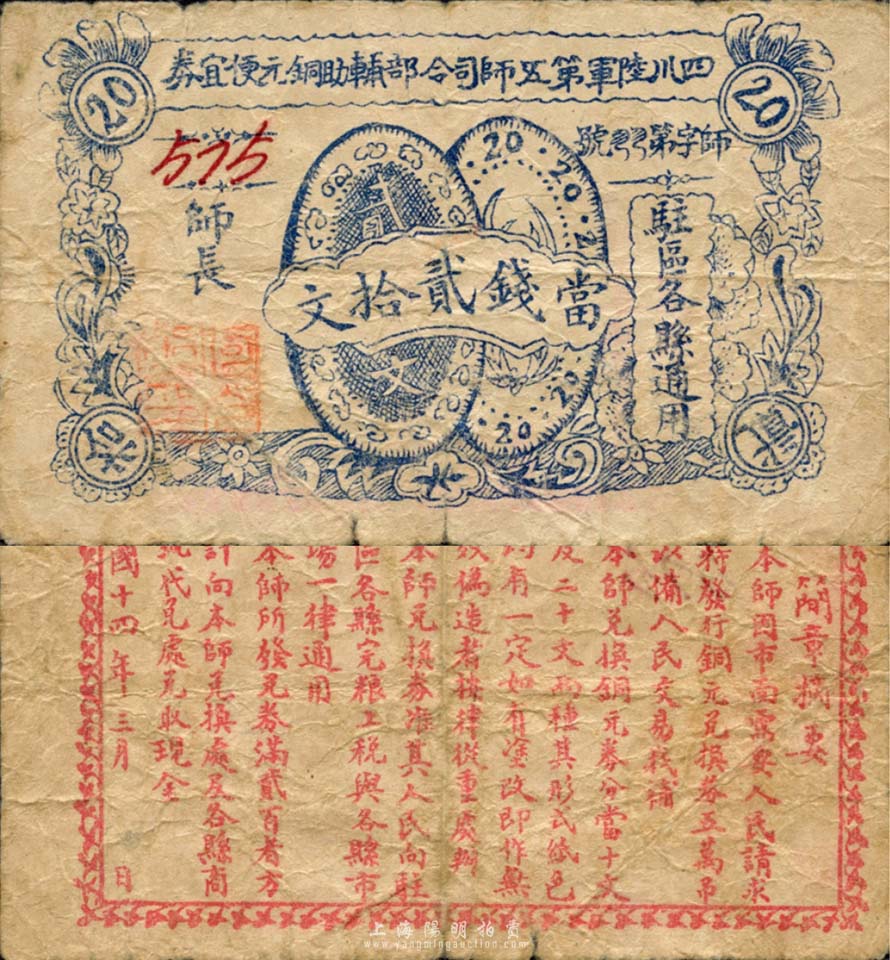 四川陸軍第五師司令部輔助銅元便宜券
20
20
師字第號
575
駐區各縣通用
師長
當錢貳拾文
貳
文
20·20·2
20·20
貳
拾
簡章摘要
本師因市面需要人民請求
特發行銅元兌換券五萬吊
以備人民交易找補
本師兌換銅元券分當十文
及二十文兩種其形式紙色
均有一定如有塗改即作無
效偽造者拏得從重處辦
本師兌換券准其人民向駐
區各縣完粮上税與各縣市
場一律通用
本師所發兌券滿貳百者方
計向本師兌換處及各縣商
號代兌處兌收現金
國十四年三月 日
上海陽明拍賣
www.yangmingauction.com